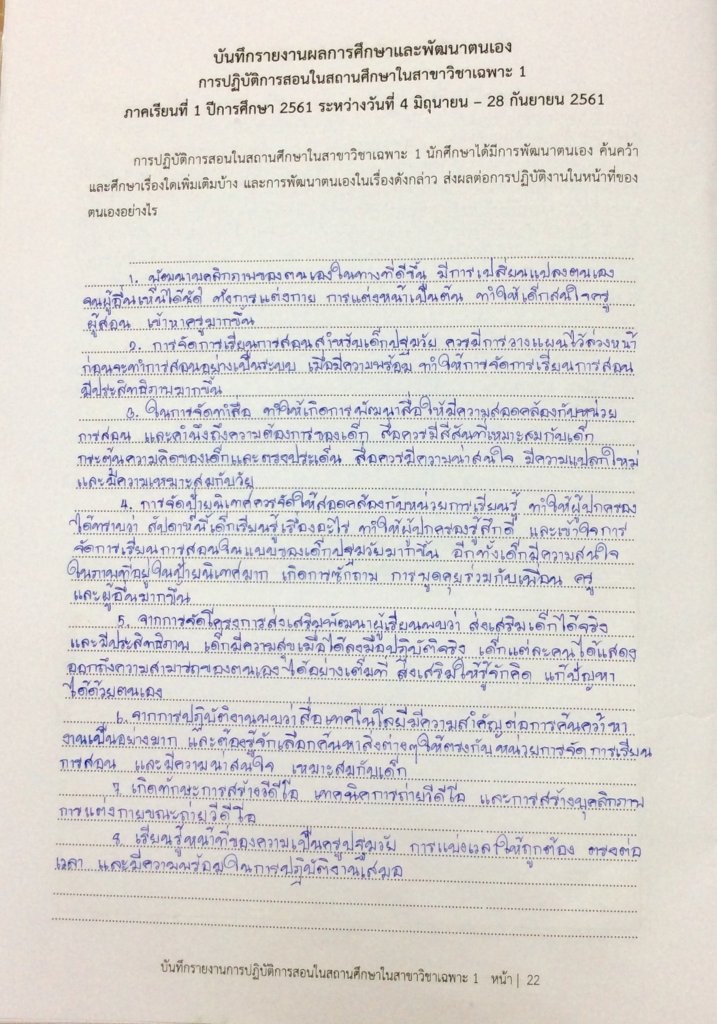 บันทึกรายงานผลการศึกษาและพัฒนาตนเอง
การปฏิบัติการสอนในสถานศึกษาในสาขาวิชาเฉพาะ 1
ภาคเรียนที่ 1 ปีการศึกษา 2561 ระหว่างวันที่ 4 มิถุนายน – 28 กันยายน 2561
การปฏิบัติการสอนในสถานศึกษาในสาขาวิชาเฉพาะ 1 นักศึกษาได้มีการพัฒนาตนเอง ค้นคว้า
และศึกษาเรื่องใดเพิ่มเติมบ้าง และการพัฒนาตนเองในเรื่องดังกล่าว ส่งผลต่อการปฏิบัติงานในหน้าที่ของ
ตนเองอย่างไร
1. พัฒนาบุคลิกภาพของตนเองในทางที่ดีขึ้น มีการเปลี่ยนแปลงตนเอง
จนผู้อื่นเห็นได้ชัด ทั้งการแต่งกาย การแต่งหน้าเป็นต้น ทำให้เด็กสนใจครู
ผู้สอน เข้าหาครูมากขึ้น
2. การจัดการเรียนการสอนสำหรับเด็กปฐมวัย ควรมีการวางแผนไว้ล่วงหน้า
ก่อนจะทำการสอนอย่างเป็นระบบ เมื่อมีความพร้อม ทำให้การจัดการเรียนการสอน
มีประสิทธิภาพมากขึ้น
3. ในการจัดทำสื่อ ทำให้เกิดการพัฒนาสื่อให้มีความสอดคล้องกับหน่วย
การสอน และคำนึงถึงความต้องการของเด็ก สื่อควรมีสีสันที่เหมาะสมกับเด็ก
กระตุ้นความคิดของเด็กและตรงประเด็น สื่อควรมีความน่าสนใจ มีความแปลกใหม่
และมีความเหมาะสมกับวัย
4. การจัดป้ายนิเทศควรจัดให้สอดคล้องกับหน่วยการเรียนรู้ ทำให้ผู้ปกครอง
ได้ทราบว่า สัปดาห์นี้เด็กเรียนรู้เรื่องอะไร ทำให้ผู้ปกครองรู้สึกดี และเข้าใจการ
จัดการเรียนการสอนในแบบของเด็กปฐมวัยมากขึ้น อีกทั้งเด็กมีความสนใจ
ในภาพที่อยู่ในป้ายนิเทศมาก เกิดการซักถาม การพูดคุยร่วมกับเพื่อน ครู
และผู้อื่นมากขึ้น
5. จากการจัดโครงการส่งเสริมพัฒนาผู้เรียนพบว่า ส่งเสริมเด็กได้จริง
และมีประสิทธิภาพ เด็กมีความสุขเมื่อได้ลงมือปฏิบัติจริง เด็กแต่ละคนได้แสดง
ออกถึงความสามารถของตนเองได้อย่างเต็มที่ ส่งเสริมให้รู้จักคิด แก้ปัญหา
ได้ด้วยตนเอง
6. จากการปฏิบัติงานพบว่าสื่อเทคโนโลยีมีความสำคัญต่อการค้นคว้าหา
งานเป็นอย่างมาก และต้องรู้จักเลือกค้นหาสิ่งต่างๆให้ตรงกับหน่วยการจัดการเรียน
การสอน และมีความน่าสนใจ เหมาะสมกับเด็ก
7. เกิดทักษะการสร้างวีดีโอ เทคนิคการถ่ายวีดีโอ และการสร้างบุคลิกภาพ
การแต่งกายขณะถ่ายวีดีโอ
8. เรียนรู้หน้าที่ของความเป็นครูปฐมวัย การแบ่งเวลาให้ถูกต้อง ตรงต่อ
เวลา และมีความพร้อมในการปฏิบัติงานเสมอ
บันทึกรายงานการปฏิบัติการสอนในสถานศึกษาในสาขาวิชาเฉพาะ 1 หน้า | 22